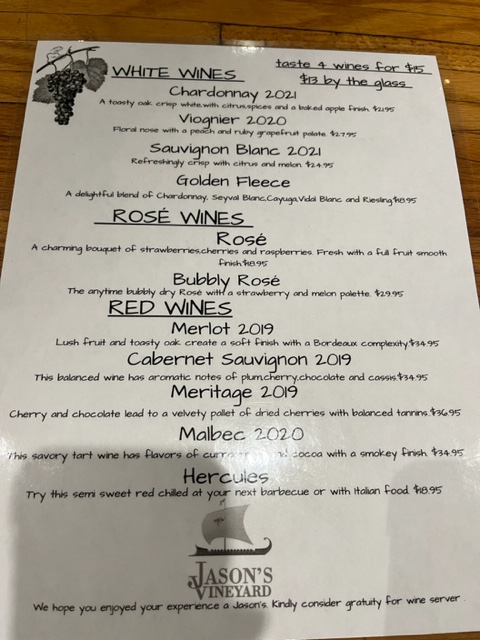 WHITE WINES
taste 4 wines for $15
$13 by the glass
Chardonnay 2021
A toasty oak crisp white,with citrus,spices and a baked apple finish $21.95
Viognier 2020
Floral nose with a peach and ruby grapefruit palate. $27.95
Sauvignon Blanc 2021
Refreshingly crisp with citrus and melon. $24.95
Golden Fleece
A delightful blend of Chardonnay, Seyval Blanc,Cayuga,Vidal Blanc and Riesling.$18.95
ROSÉ WINES
Rosé
A charming bouquet of strawberries,cherries and raspberries. Fresh with a full fruit smooth
finish.$18.95
Bubbly Rosé
The anytime bubbly dry Rosé with a strawberry and melon palette. $29.95
RED WINES
Merlot 2019
Lush fruit and toasty oak create a soft finish with a Bordeaux complexity.$34.95
Cabernet Sauvignon 2019
This balanced wine has aromatic notes of plum,cherry,chocolate and cassis.$34.95
Meritage 2019
Cherry and chocolate lead to a velvety pallet of dried cherries with balanced tannins.$36.95
Malbec 2020
This savory tart wine has flavors of cocoa with a smokey finish. $34.95
Hercules
Try this semi sweet red chilled at your next barbecue or with Italian food. $18.95
JASON'S
VINEYARD
We hope you enjoyed your experience a Jason's. Kindly consider gratuity for wine server.